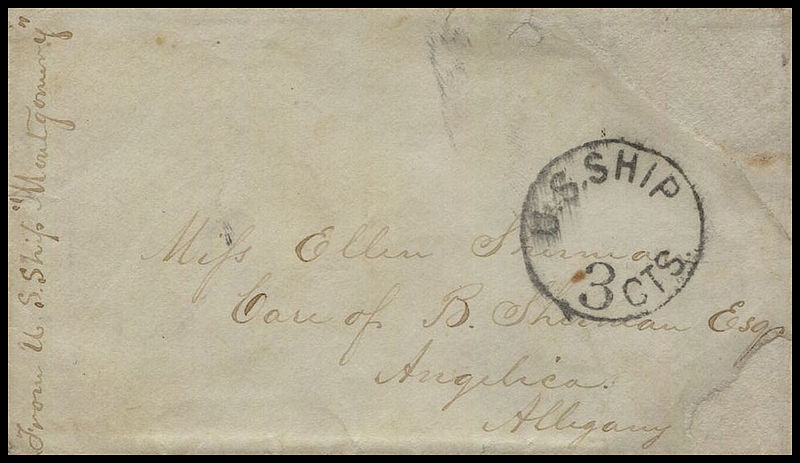 From U S. Ship "Montgomery"
U.S. SHIP
3 CTS.
Miss Ellen Sherman
Care of B. Sherman Esq
Angelica.
Allegany